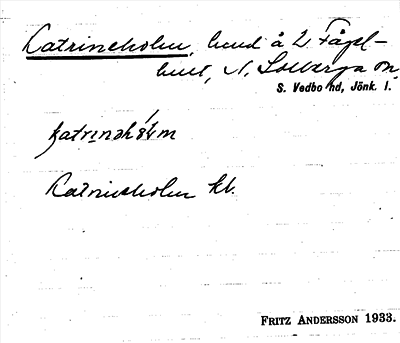 Katrineholm, hund å L. Fågel-
hult, N. Solberga sn.
S. Vedbo hd, Jönk. l.
Katrineholm kt.
FRITZ ANDERSSON 1933.